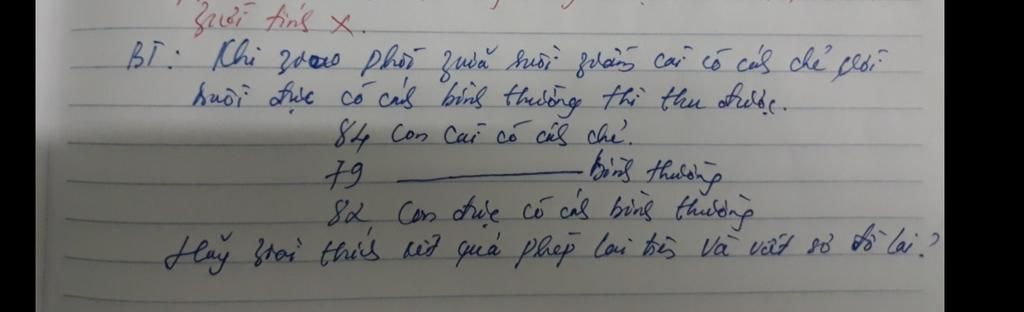 giới tính X.
BT: Khi giao phối giữa ruồi giấm cái có cánh chẻ với
ruồi đực có cánh bình thường thì thu được.
84 con cái có cánh chẻ.
79 ———— bình thường
82 con đực có cánh bình thường
Hãy giải thích kết quả phép lai trên và viết sơ đồ lai?